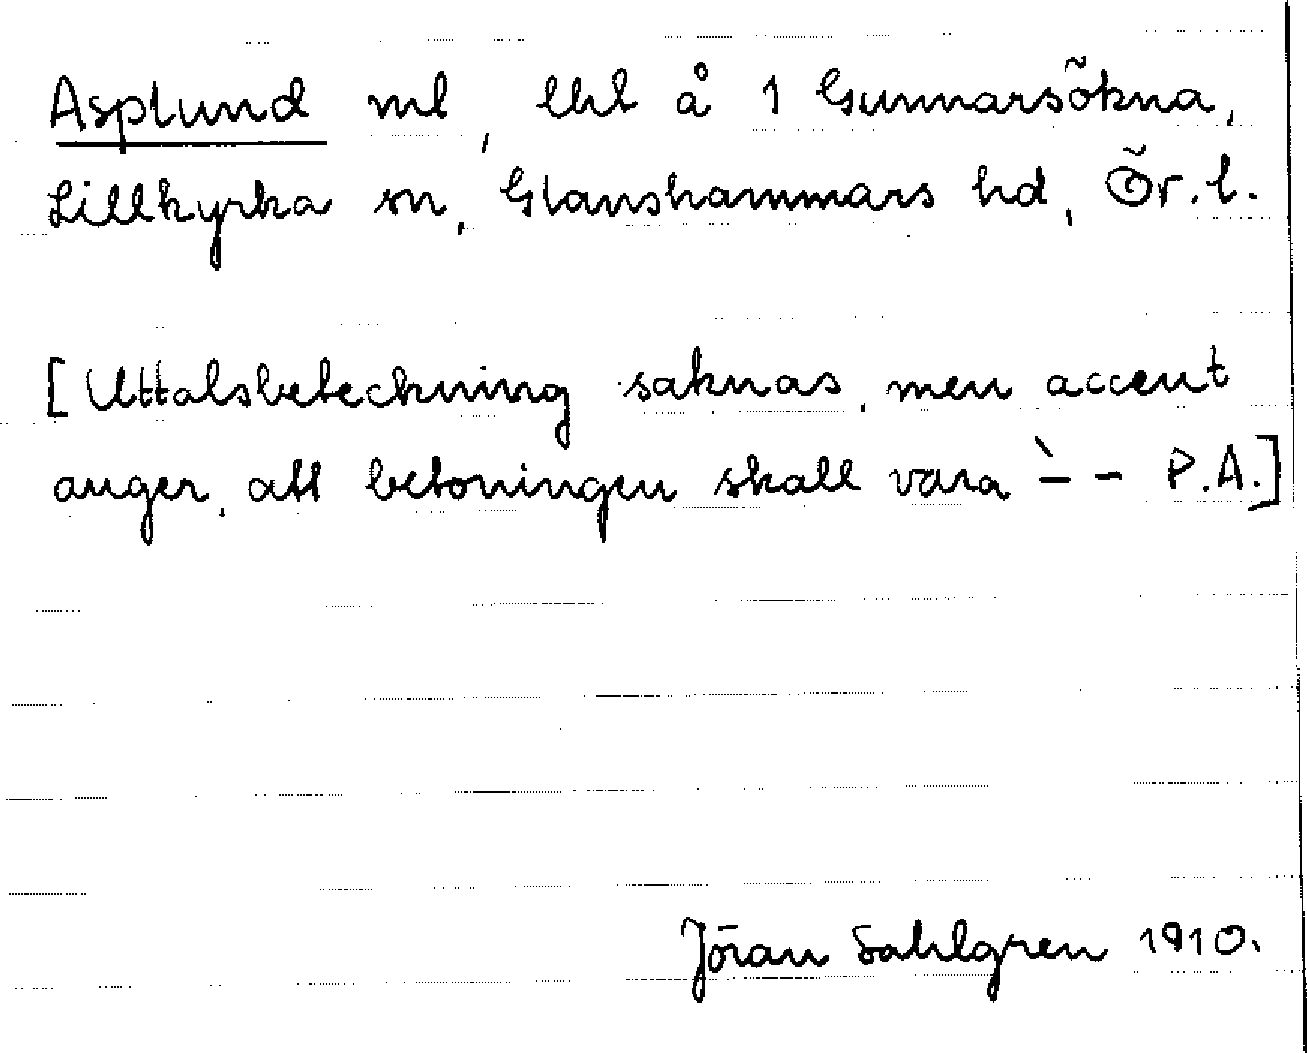 Asplund ml, lht å 1 Gunnarsökna,
Lillkyrka sn, Glanshammars hd, Ör.l.
[Uttalsbeteckning saknas, men accent
anger, att betoningen skall vara ̀– – P.A.]
Jöran Sahlgren 1910.